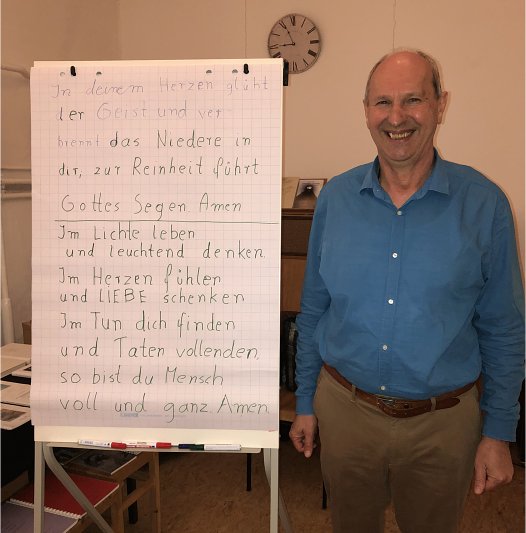 In deinem Herzen glüht
der Geist und ver-
brennt das Niedere in
dir, zur Reinheit führt
Gottes Segen. Amen
Im Lichte leben
und leuchtend denken.
Im Herzen fühlen
und LIEBE schenken
Im Tun dich finden
und Taten vollenden,
so bist du Mensch
voll und ganz. Amen.